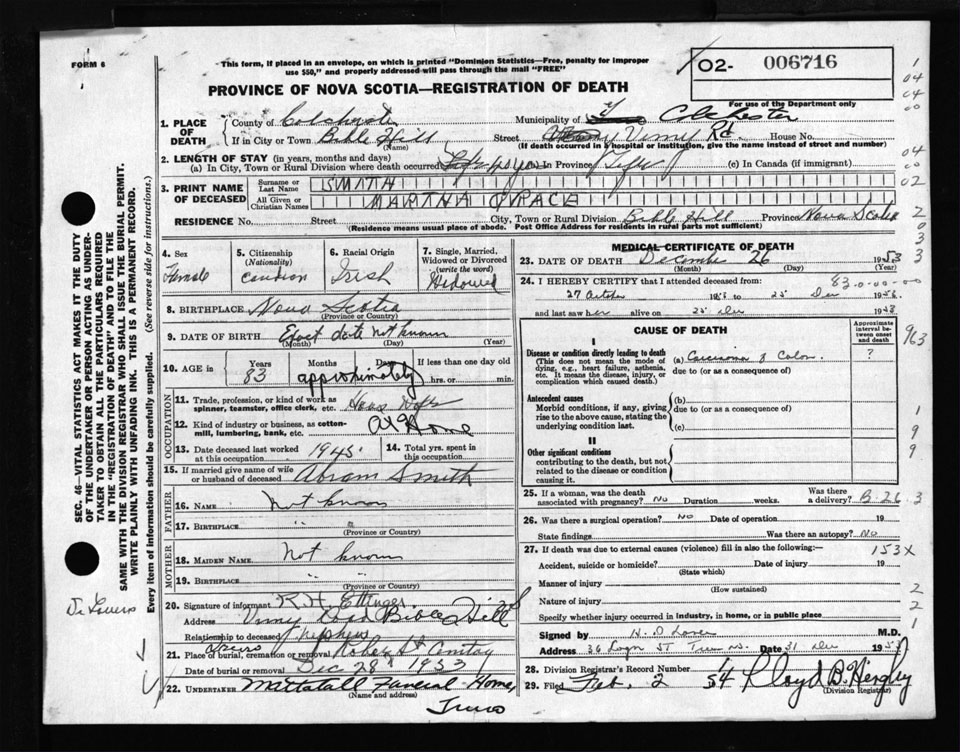 FORM 6
This form, if placed in an envelope, on which is printed "Dominion Statistics—Free, penalty for improper
use $50," and properly addressed will pass through the mail "FREE"
02- 006716
For use of the Department only
PROVINCE OF NOVA SCOTIA—REGISTRATION OF DEATH
1. PLACE OF DEATH
County of Colchester Municipality of Colchester
If in City or Town Bible Hill Street Vimy Rd. House No.
(Name) (If death occurred in a hospital or institution, give the name instead of street and number)
2. LENGTH OF STAY (in years, months and days)
(a) In City, Town or Rural Division where death occurred (b) In Province Life (c) In Canada (if immigrant)
3. PRINT NAME OF DECEASED
Surname or Last Name SMITH
All Given or Christian Names MARTHA GRACE
RESIDENCE No. Street City, Town or Rural Division Bible Hill Province Nova Scotia
(Residence means usual place of abode. Post Office Address for residents in rural parts not sufficient)
4. Sex Female
5. Citizenship (Nationality) Canadian
6. Racial Origin Irish
7. Single, Married, Widowed or Divorced (write the word) Widowed
8. BIRTHPLACE Nova Scotia
(Province or Country)
9. DATE OF BIRTH Exact date not known
(Month) (Day) (Year)
10. AGE in Years 83 Months Days approximately If less than one day old hrs. or min.
OCCUPATION
11. Trade, profession, or kind of work as spinner, teamster, office clerk, etc. House Wife
12. Kind of industry or business, as cotton-mill, lumbering, bank, etc. At Home
13. Date deceased last worked at this occupation 1945
14. Total yrs. spent in this occupation
15. If married give name of wife or husband of deceased Abram Smith
FATHER
16. NAME Not known
17. BIRTHPLACE " "
(Province or Country)
MOTHER
18. MAIDEN NAME Not known
19. BIRTHPLACE " "
(Province or Country)
20. Signature of informant R. H. Ettinger
Address Vimy Road Bible Hill
Relationship to deceased nephew
21. Place of burial, cremation or removal Truro Robie St Cemetery
Date of burial or removal Dec 28 1953
22. UNDERTAKER Mattatall Funeral Home,
(Name and address)
Truro
MEDICAL CERTIFICATE OF DEATH
23. DATE OF DEATH December 26 1953
(Month) (Day) (Year)
24. I HEREBY CERTIFY that I attended deceased from: 83-0-00-00
27 October 195 to 25 Dec 195
and last saw her alive on 25 Dec 1953
CAUSE OF DEATH
Approximate interval between onset and death
I
Disease or condition directly leading to death (a) Carcinoma of Colon. ?
(This does not mean the mode of dying, e.g., heart failure, asthenia, etc. It means the disease, injury, or complication which caused death.)
due to (or as a consequence of)
Antecedent causes (b)
Morbid conditions, if any, giving rise to the above cause, stating the underlying condition last.
due to (or as a consequence of)
(c)
II
Other significant conditions
contributing to the death, but not related to the disease or condition causing it.
25. If a woman, was the death associated with pregnancy? No Duration weeks. Was there a delivery? B 26
26. Was there a surgical operation? No Date of operation 19
State findings Was there an autopsy? No
27. If death was due to external causes (violence) fill in also the following:— 153X
Accident, suicide or homicide? Date of injury 19
(State which)
Manner of injury
(How sustained)
Nature of injury
Specify whether injury occurred in industry, in home, or in public place
Signed by M.D.
Address 36 St Truro N.S. Date 31 Dec 195
28. Division Registrar's Record Number 4
29. Filed Feb. 2 54 Lloyd B.
(Division Registrar)
SEC. 46—VITAL STATISTICS ACT MAKES IT THE DUTY
OF THE UNDERTAKER OR PERSON ACTING AS UNDER-
TAKER TO OBTAIN ALL THE PARTICULARS REQUIRED
IN THE "REGISTRATION OF DEATH" AND TO FILE THE
SAME WITH THE DIVISION REGISTRAR WHO SHALL ISSUE THE BURIAL PERMIT.
WRITE PLAINLY WITH UNFADING INK. THIS IS A PERMANENT RECORD.
Every item of information should be carefully supplied. (See reverse side for instructions.)